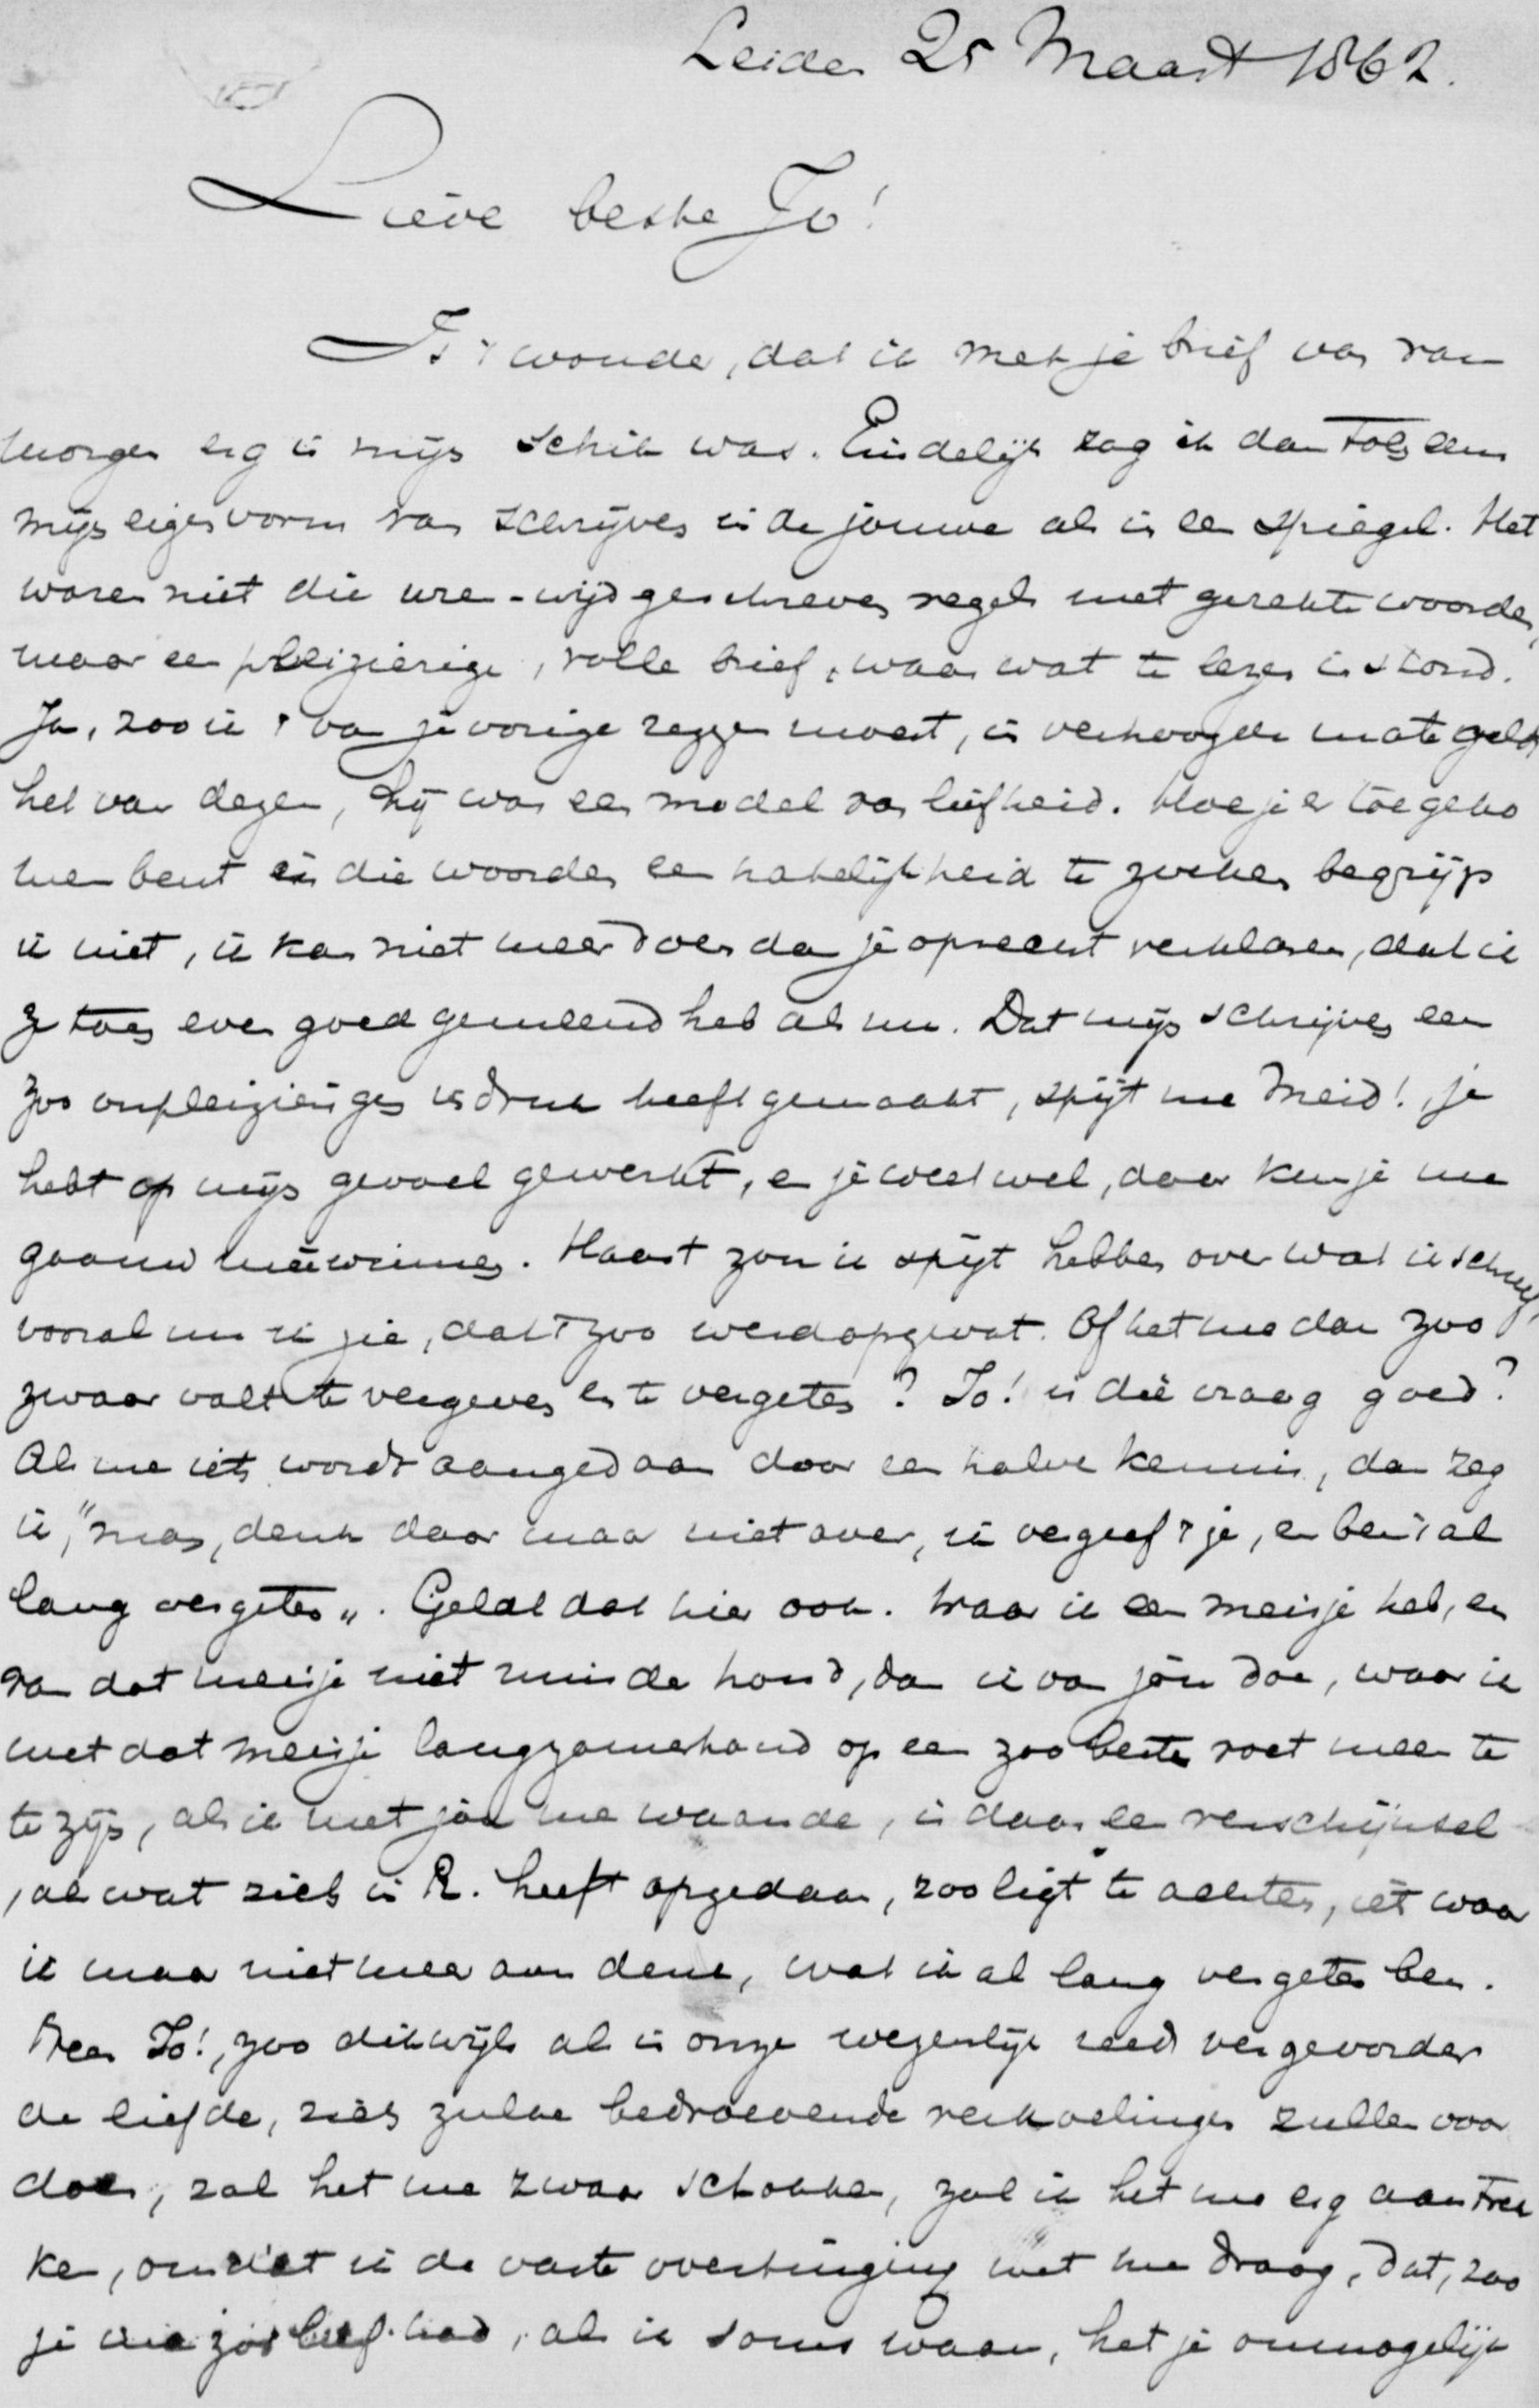 Leiden 25 Maart 1862.
Lieve beste Jo!
Is 't wonder, dat ik met je brief van van
morgen erg in mijn schik was. Eindelijk zag ik dan toch eens
mijn eigen vorm van schrijven in de jouwe als in een spiegel. Het
waren niet die uren-wijd geschreven regels met gerekte woorden,
maar een pleizierige, volle brief, waar wat te lezen in stond.
Ja, zoo ik 't van je vorige zeggen moest, in verhoogde mate geldt
het van dezen, hij was een model van liefheid. Hoe je er toe geko
men bent in die woorden een hatelijkheid te zoeken begrijp
ik niet, ik kan niet meer doen dan je oprecht verklaren, dat ik
ze toen even goed gemeend heb als nu. Dat mijn schrijven een
zoo onpleizierigen indruk heeft gemaakt, spijt me meid! je
hebt op mijn gevoel gewerkt, en je weet wel, daar kun je me
gaauw meê winnen. Haast zou ik spijt hebben over wat ik schreef,
vooral nu ik zie, dat 't zoo werd opgevat. Of het me dan zoo
zwaar valt te vergeven en te vergeten? Jo! is die vraag goed?
Als me iets wordt aangedaan door een halve kennis, dan zeg
ik, "man, denk daar maar niet over, ik vergeef 't je, en ben 't al
lang vergeten". Geldt dat hier ook. Waar ik een meisje heb, en
van dat meisje niet minder houd, dan ik van jou doe, waar ik
met dat meisje langzamerhand op een zoo besten voet meen te
te zijn, als ik met jou me waande, is daar een verschijnsel
, als wat zich in R. heeft opgedaan, zoo ligt te achten, iets waar
ik maar niet meer aan denk, wat ik al lang vergeten ben.
Neen Jo!, zoo dikwijls als in onze wezenlijk reeds vergevorder
de liefde, zich zulke bedroevende verkoelingen zullen voor
doen, zal het me zwaar schokken, zal ik het me erg aantrek
ken, omdat ik de vaste overtuiging met me draag, dat, zoo
je me zoo lief had, als ik soms waan, het je onmogelijk